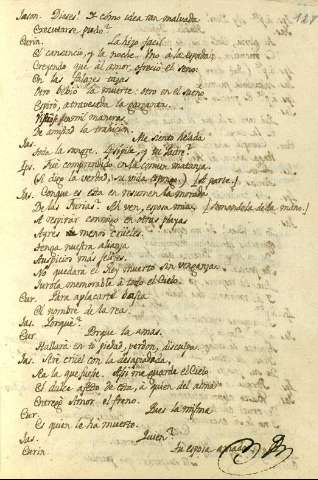 127
Jason. Dioses! Y cómo idea tan malvada
Executarse pudo?
Eurin. La hizo fácil
El cansancio, y la noche. Uno a la espada
Creyendo que al amor, ofreció el seno:
En las falaces tazas
Otro bebió la muerte: otro en el sueño
Espiró, atravesada la garganta.
mil maneras
De
Jas. Me siento helada
Toda la sangre. Hisipile, y tu Padre?
Ips. Fue comprendido en la comun matanza.
(Si digo la verdad, su vida expongo) (Aparte.)
Jas. Conque es esta en resumen la morada
De las Furias? Ah ven, esposa mia, (tomandola de la mano.)
A respirar conmigo en otras playas
Ayres menos crueles.
Tenga nuestra alianza
Auspicios más felices.
No quedará el Rey muerto sin venganza;
Jurola memorable á todo el Cielo.
Eur. Para aplacarte basta
El nombre de la rea.
Jas. Porqué?
Eur. Porque la amas.
Hallará en tu piedad, perdon, disculpa.
Jas. Seré cruel con la desapiadada,
Sea la que fuese. Asi me guarde el Cielo
El dulce afecto de esta, á quien del alma
Entregó Amor el freno.
Eur. Pues la misma
Es quien le ha muerto.
Jas. Quien?
Eurin. Tu esposa amada.